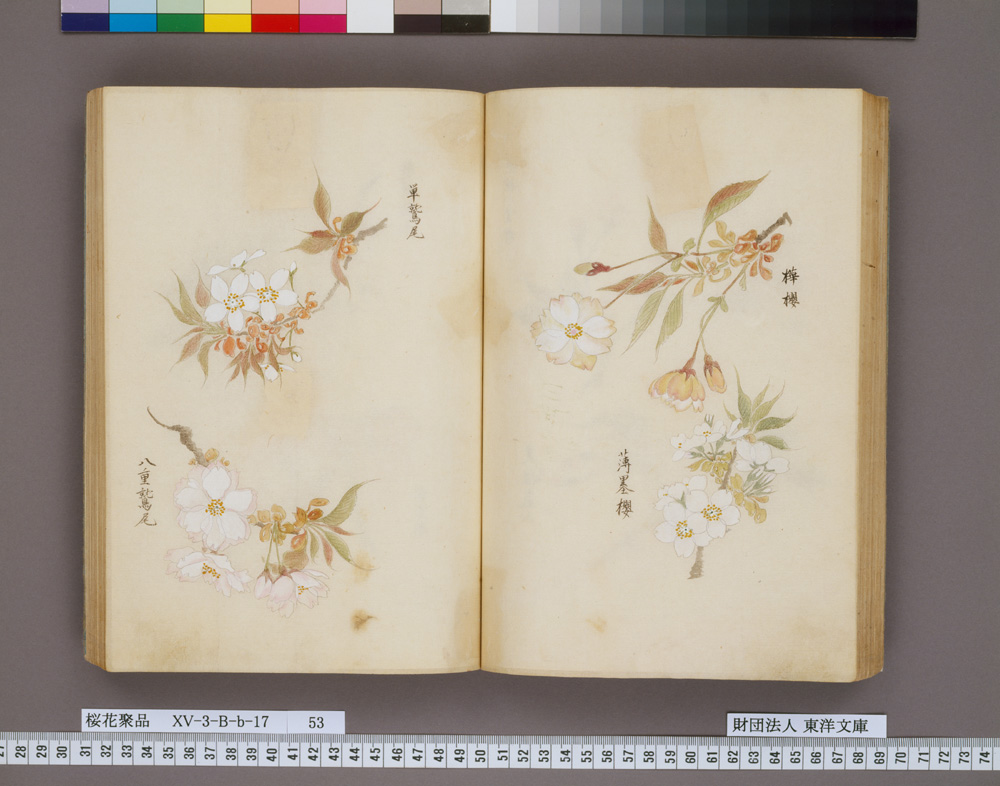 樺櫻
薄墨櫻
単鷲尾
八重鷲尾
桜花聚品 XV-3-B-b-17 53
財団法人 東洋文庫
27 28 29 30 31 32 33 34 35 36 37 38 39 40 41 42 43 44 45 46 47 48 49 50 51 52 53 54 55 56 57 58 59 60 61 62 63 64 65 66 67 68 69 70 71 72 73 74